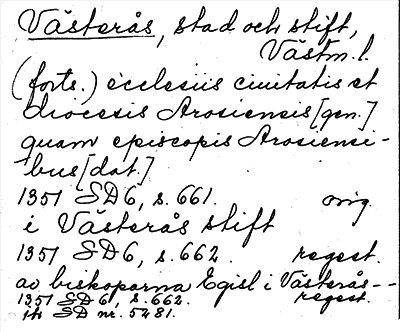 Västerås, stad och stift,
Västm. l.
(forts.) ecclesiis ciuitatis et
diocesis Arosiensis [gen.]
quam episcopis Arosiensi-
bus [dat.]
1351 SD6, s. 661. orig.
i Västerås stift
1351 SD6, s. 662. regest.
av biskoparna Egisl i Västerås--
1351 SD 6, s. 662. regest.
jfr SD nr. 5281.